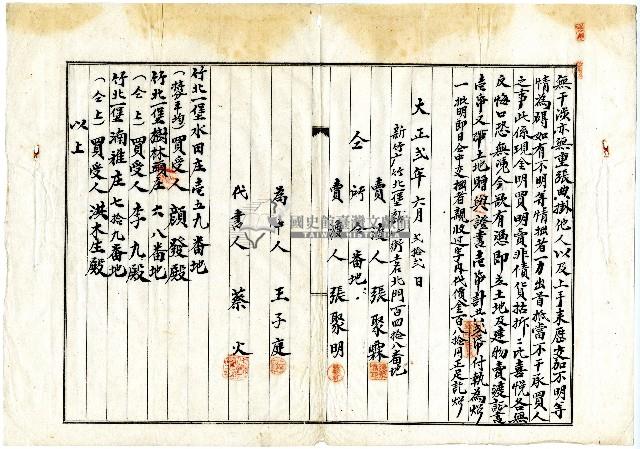 無干涉亦無重張典掛他人以及上手來歷交加不明等
情為碍如有不明等情拙者一力出首抵當不干承買人
之事此係現金明買明賣非債貨拈折二比喜悅各無
反悔口恐無憑今欲有憑即立土地及建物賣渡證書
壹帋又帶土地賭與證書壹帋計共貳帋付執為炤
一批明即日仝中交拙者親收過字內代價金百八拾円正足訖炤
大正貳年六月貳拾貳日
新竹廳竹北一堡新竹街土名北門百四拾八番地
賣渡人 張聚霖
仝所仝番地
賣渡人 張聚明
為中人 王子庭
代書人 蔡火
竹北一堡水田庄壱五九番地
買受人 顏發殿
竹北一堡樹林頭庄六八番地
（仝上）買受人 李九殿
竹北一堡湳雅庄七拾九番地
（仝上）買受人 洪木生殿
以上
國史館臺灣文獻館